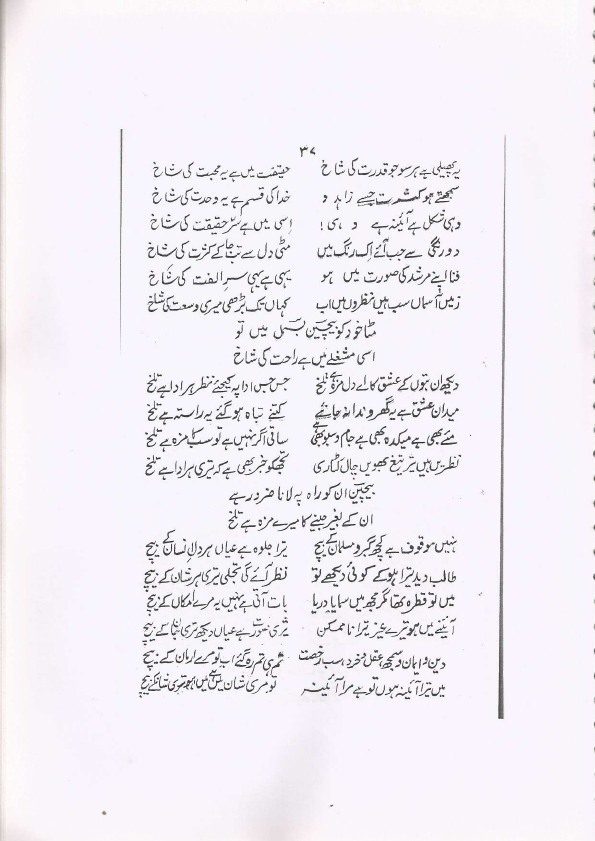 ۳۷
یہ پھیلی ہے ہر سو جو قدرت کی شاخ حقیقت میں ہے یہ محبت کی شاخ
سمجھتے ہو کثرت جسے زاہدو خدا کی قسم ہے یہ وحدت کی شاخ
وہی شکل ہے آئینہ ہے وہی! اسی میں ہے سرّ حقیقت کی شاخ
دورنگی سے جب آئے اک رنگ میں مٹی دل سے تب جا کے کثرت کی شاخ
فنا اپنے مرشد کی صورت میں ہو یہی ہے یہی سرِ الفت کی شاخ
زمیں آسماں سب ہیں نظروں میں اب کہاں تک بڑھی میری وسعت کی شاخ
مٹا خود کو بیچین بسمل میں تو
اسی مشغلے میں ہے راحت کی شاخ
دیکھ ان بتوں کے عشق کا اے دل مزہ ہے تلخ جس جس ادا پہ کیجئے نظر ہر ادا ہے تلخ
میدان عشق ہے یہ گھروندا نہ جانیے کتنے تباہ ہو گئے یہ راستہ ہے تلخ
مئے بھی ہے میکدہ بھی ہے جام و سبو بھی ہے ساقی اگر نہیں ہے تو سب کا مزہ ہے تلخ
نظریں ہیں تیر تیغ بھویں چال کٹاری تجھ کو خبر بھی ہے کہ تری ہر ادا ہے تلخ
بیچین ان کو راہ پہ لانا ضرور ہے
ان کے بغیر جینے کا میرے مزہ ہے تلخ
نہیں موقوف ہے کچھ گبر و مسلمان کے بیچ ترا جلوہ ہے عیاں ہر دل انسان کے بیچ
طالب دید ترا ہو کے کوئی دیکھے تو نظر آئے گی تجلی تیری ہر شان کے بیچ
میں تو قطرہ تھا مگر مجھ میں سمایا دریا بات آتی ہے نہیں یہ مرے امکاں کے بیچ
آئینے میں ہو ترے غیر ترا نا ممکن تیری صورت ہے عیاں دیکھ تری کے بیچ
دین و ایمان و سمجھ، عقل و خرد، سب رخصت تم ہی تم رہ گئے اب تو مرے ارمان کے بیچ
میں ترا آئینہ ہوں تو ہے مرا آئینہ تو مری شان میں ہے میں ہوں تری شان کے بیچ